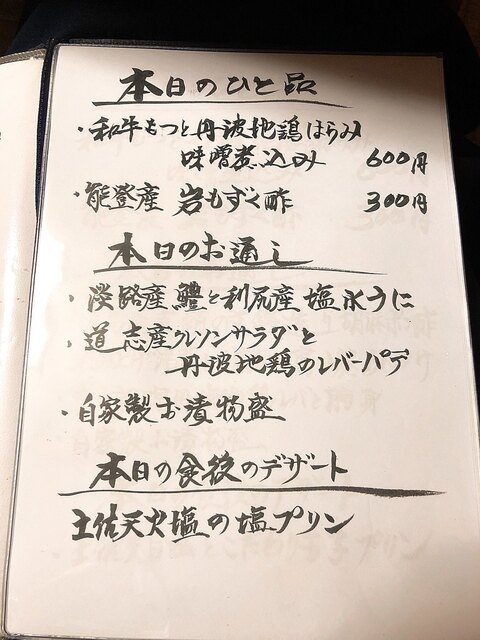 本日のひと品
・和牛もつと丹波地鶏はらみ
味噌煮込み 600円
・能登産 岩もずく酢 300円
本日のお通し
・淡路産 鱧と利尻産 塩水うに
・道志産クレソンサラダと
丹波地鶏のレバーパテ
・自家製お漬物盛
本日の食後のデザート
土佐天火塩の塩プリン